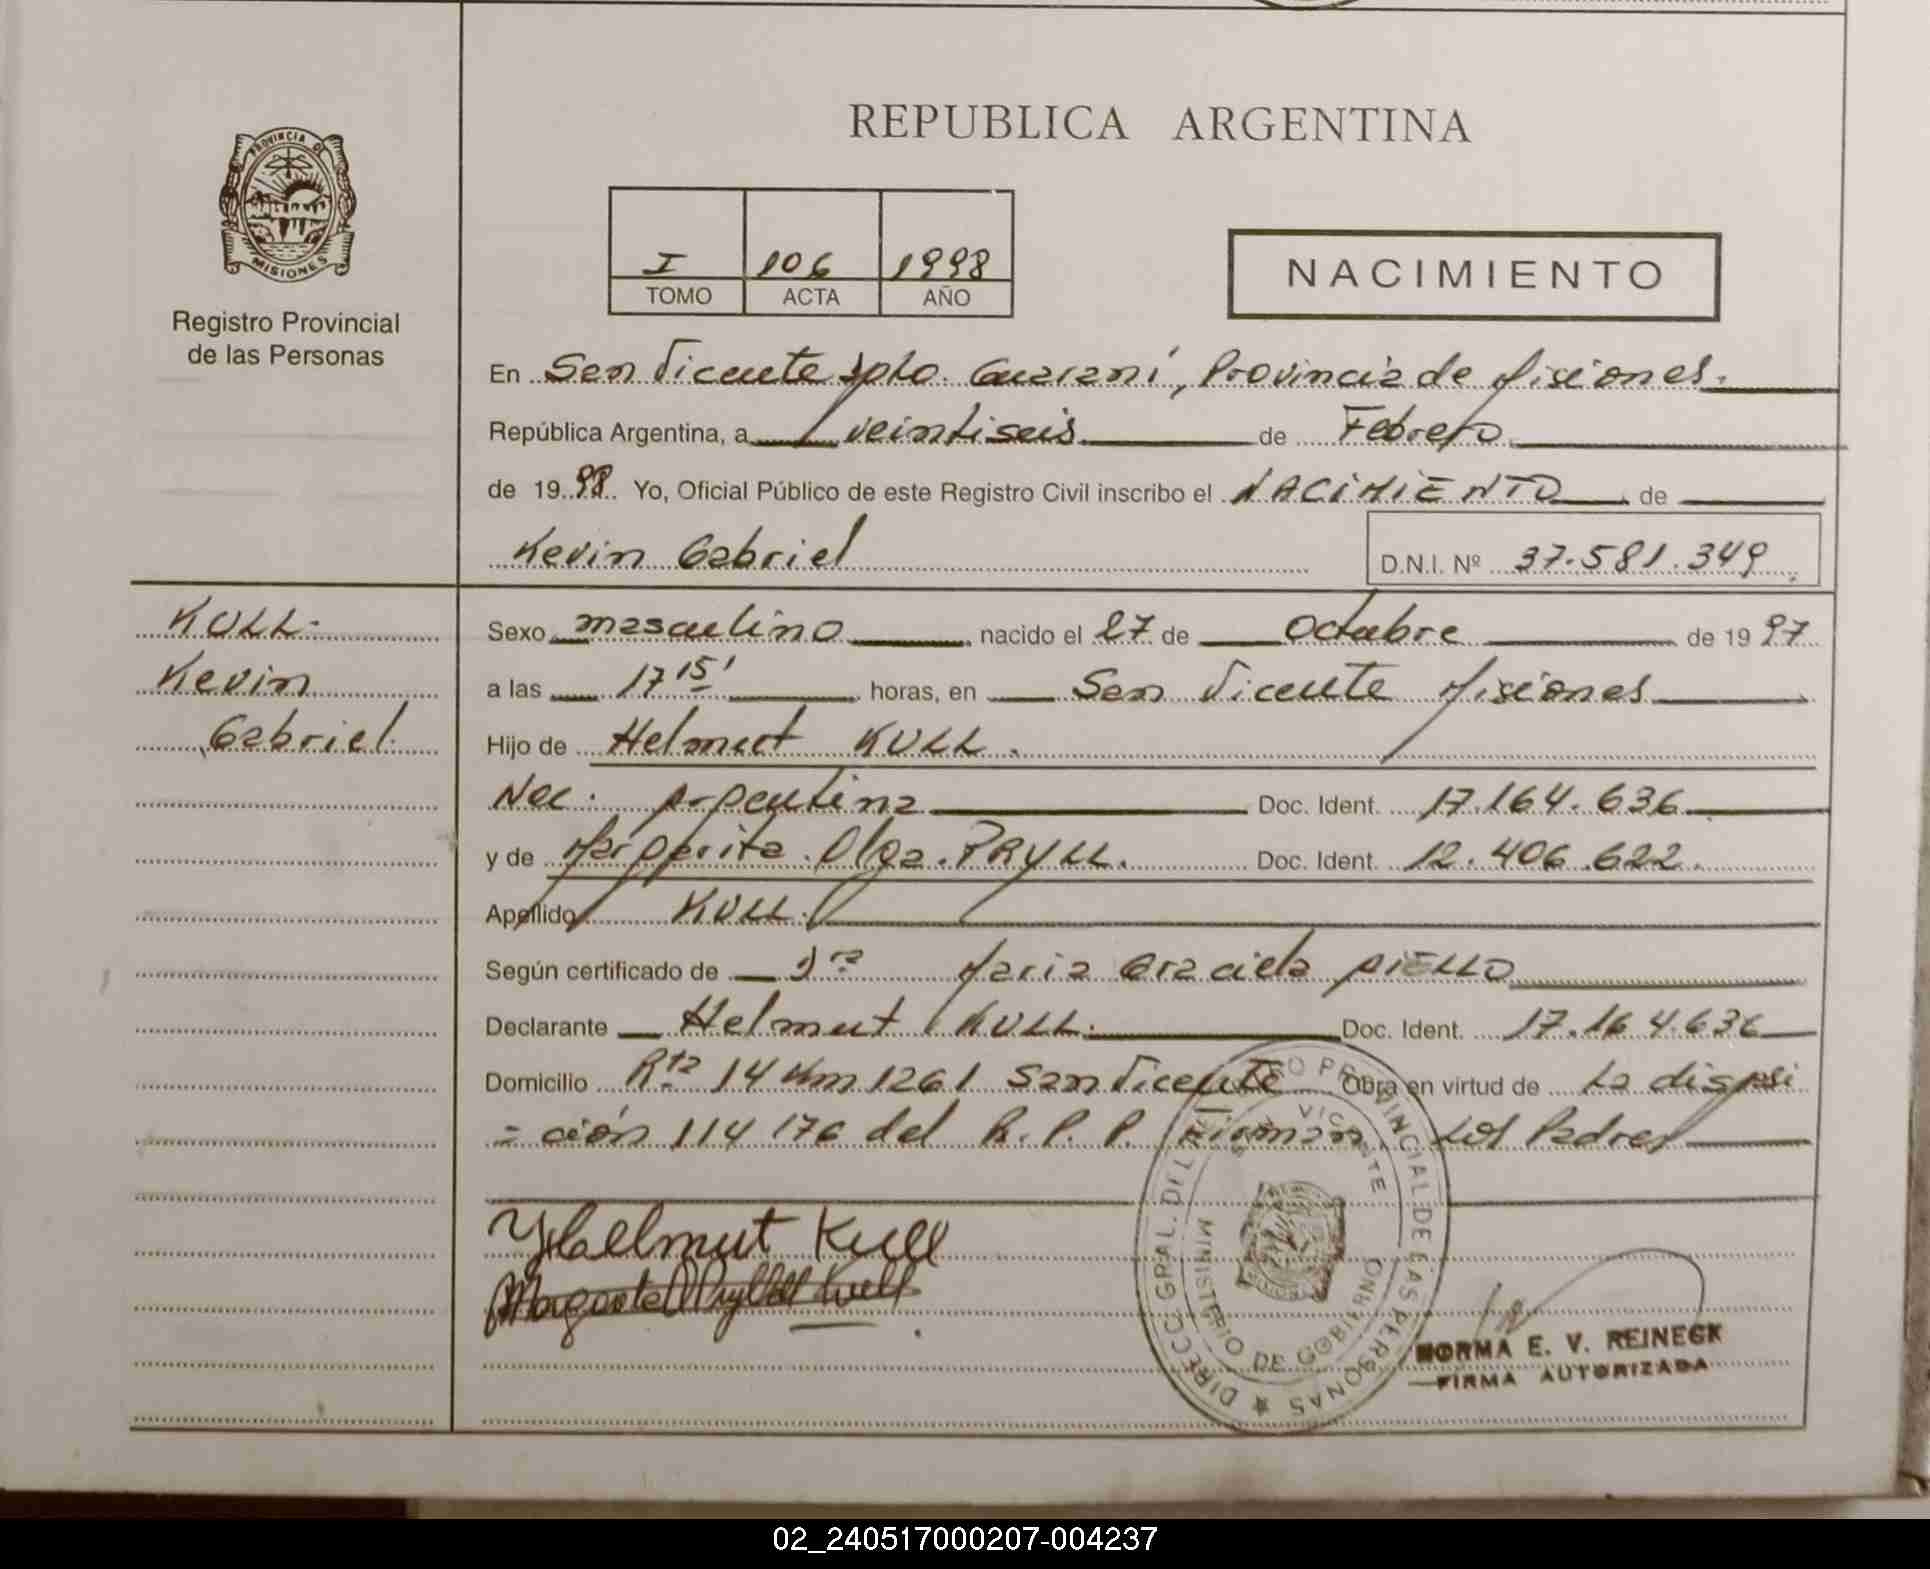 REPUBLICA ARGENTINA
PROVINCIA DE MISIONES
Registro Provincial
de las Personas
I 106 1998
TOMO ACTA AÑO
NACIMIENTO
En San Vicente Dpto. Guaraní, Provincia de Misiones.
República Argentina, a veintiseis de Febrero
de 19 98 Yo, Oficial Público de este Registro Civil inscribo el NACIMIENTO de
Kevin Gabriel D.N.I. Nº 37.581.349
KULL.
Kevin
Gabriel
Sexo masculino nacido el 27 de Octubre de 19 97
a las 17 15' horas, en San Vicente Misiones
Hijo de Helmut KULL.
Nac. Argentina Doc. Ident. 17.164.636
y de Margarita Olga PRYLL. Doc. Ident. 12.406.622.
Apellido KULL.
Según certificado de Maria Graciela AIELLO
Declarante Helmut KULL. Doc. Ident. 17.164.636
Domicilio Rta 14 Km 1261 San Vicente Obra en virtud de La disposi
= ción 114 176 del R.P.P. Firman Los Padres
Helmut Kull
Kull
DIRECC. GRAL. DEL REGISTRO PROVINCIAL DE LAS PERSONAS
SAN VICENTE
MINISTERIO DE GOBIERNO
NORMA E. V. REINECK
FIRMA AUTORIZADA
02_240517000207-004237